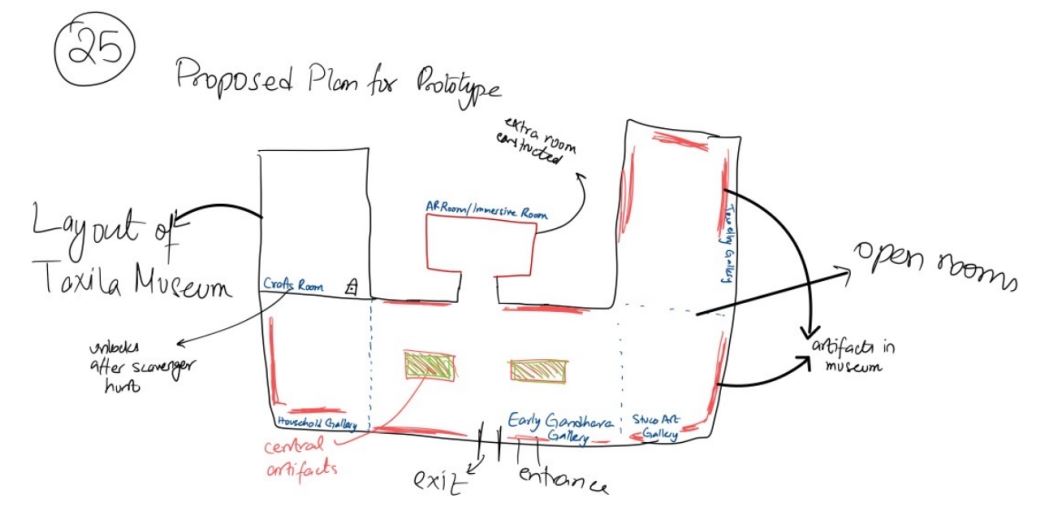 25
Proposed Plan for Prototype
extra room
constructed
AR Room/Immersive Room
Layout of
Taxila Museum
Crafts Room
Jewelry Gallery
open rooms
unlocks
after scavenger
hunt
artifacts in
museum
Household Gallery
Early Gandhara
Gallery
Stuco Art
Gallery
central
artifacts
exit
entrance